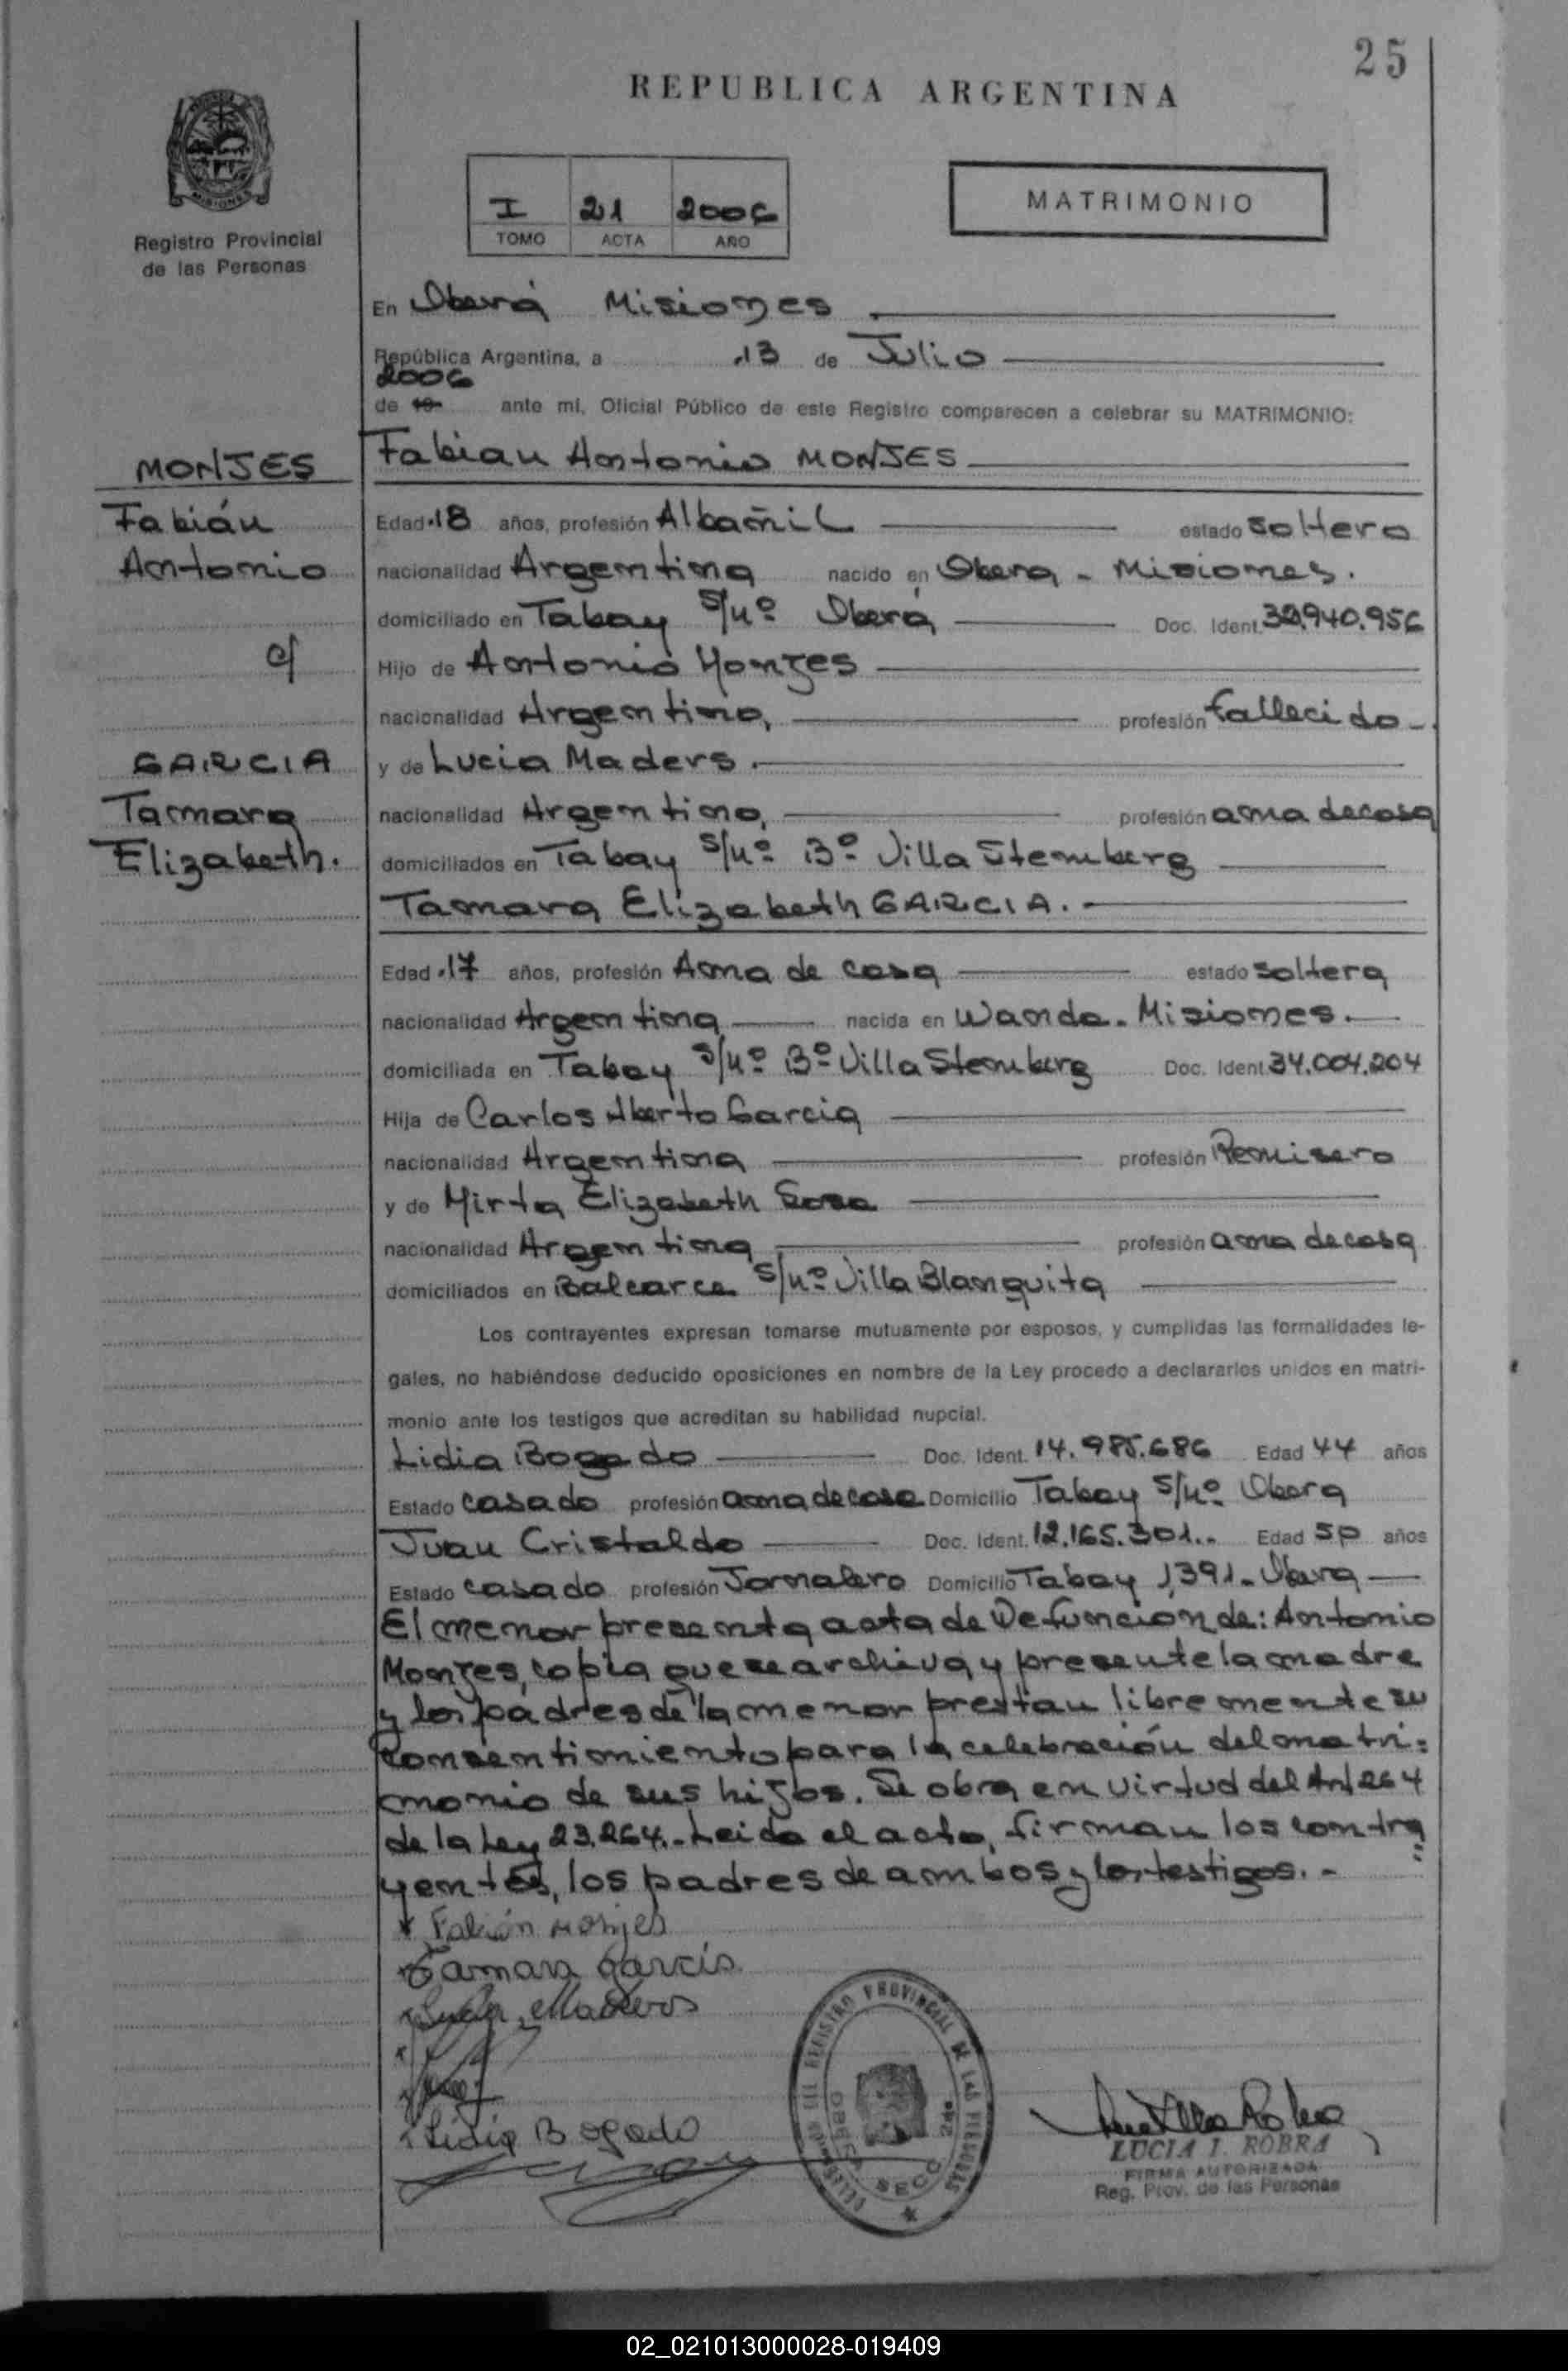 25
REPUBLICA ARGENTINA
MISIONES
Registro Provincial
de las Personas
I 21 2006
TOMO ACTA AÑO
MATRIMONIO
En Oberá Misiones
República Argentina, a 13 de Julio
2006
de 19 ante mí, Oficial Público de este Registro comparecen a celebrar su MATRIMONIO:
MONJES
Fabián
Antonio
c/
GARCIA
Tamara
Elizabeth.
Fabian Antonio MONJES
Edad 18 años, profesión Albañil estado soltero
nacionalidad Argentina nacido en Obera - Misiones.
domiciliado en Tabay S/nº Oberá Doc. Ident. 32.940.956
Hijo de Antonio Monjes
nacionalidad Argentino, profesión fallecido -
y de Lucia Maders.
nacionalidad Argentina, profesión ama de casa
domiciliados en Tabay S/nº Bº Villa Stemberg
Tamara Elizabeth GARCIA.
Edad 17 años, profesión Ama de casa estado soltera
nacionalidad Argentina nacida en Wanda - Misiones.
domiciliada en Tabay S/nº Bº Villa Stemberg Doc. Ident. 34.004.204
Hija de Carlos Alberto Garcia
nacionalidad Argentina profesión Remisero
y de Mirta Elizabeth Sosa
nacionalidad Argentina profesión ama de casa
domiciliados en Balcarce S/nº Villa Blanquita
Los contrayentes expresan tomarse mutuamente por esposos, y cumplidas las formalidades le-
gales, no habiéndose deducido oposiciones en nombre de la Ley procedo a declararlos unidos en matri-
monio ante los testigos que acreditan su habilidad nupcial.
Lidia Bogado Doc. Ident. 14.985.686 Edad 44 años
Estado casado profesión ama de casa Domicilio Tabay S/nº Obera
Juan Cristaldo Doc. Ident. 12.165.301.. Edad 50 años
Estado casado profesión Jornalero Domicilio Tabay 1391 - Obera
El menor presenta acta de Defunción de: Antonio
Monjes, copia que se archiva y presente la madre
y los padres de la menor prestan libremente su
consentimiento para la celebración del matri=
monio de sus hijos. Se obra en virtud del Art 264
de la Ley 23.264.- Leida el acta, firman los contra
yentes, los padres de ambos y los testigos. -
Fabián Monjes
Tamara Garcia
Lucia Maders
Lidia Bogado
REGISTRO PROVINCIAL DE LAS PERSONAS
OBERA SECC 2da
LUCIA I. ROBRA
FIRMA AUTORIZADA
Reg. Prov. de las Personas
02_021013000028-019409